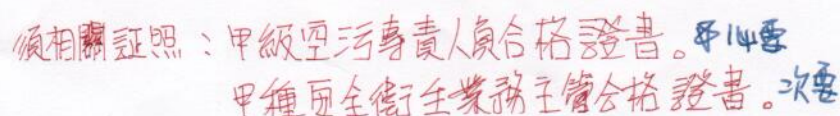 須相關証照：甲級空污專責人員合格證書。不必要
甲種安全衛生業務主管合格證書。次要